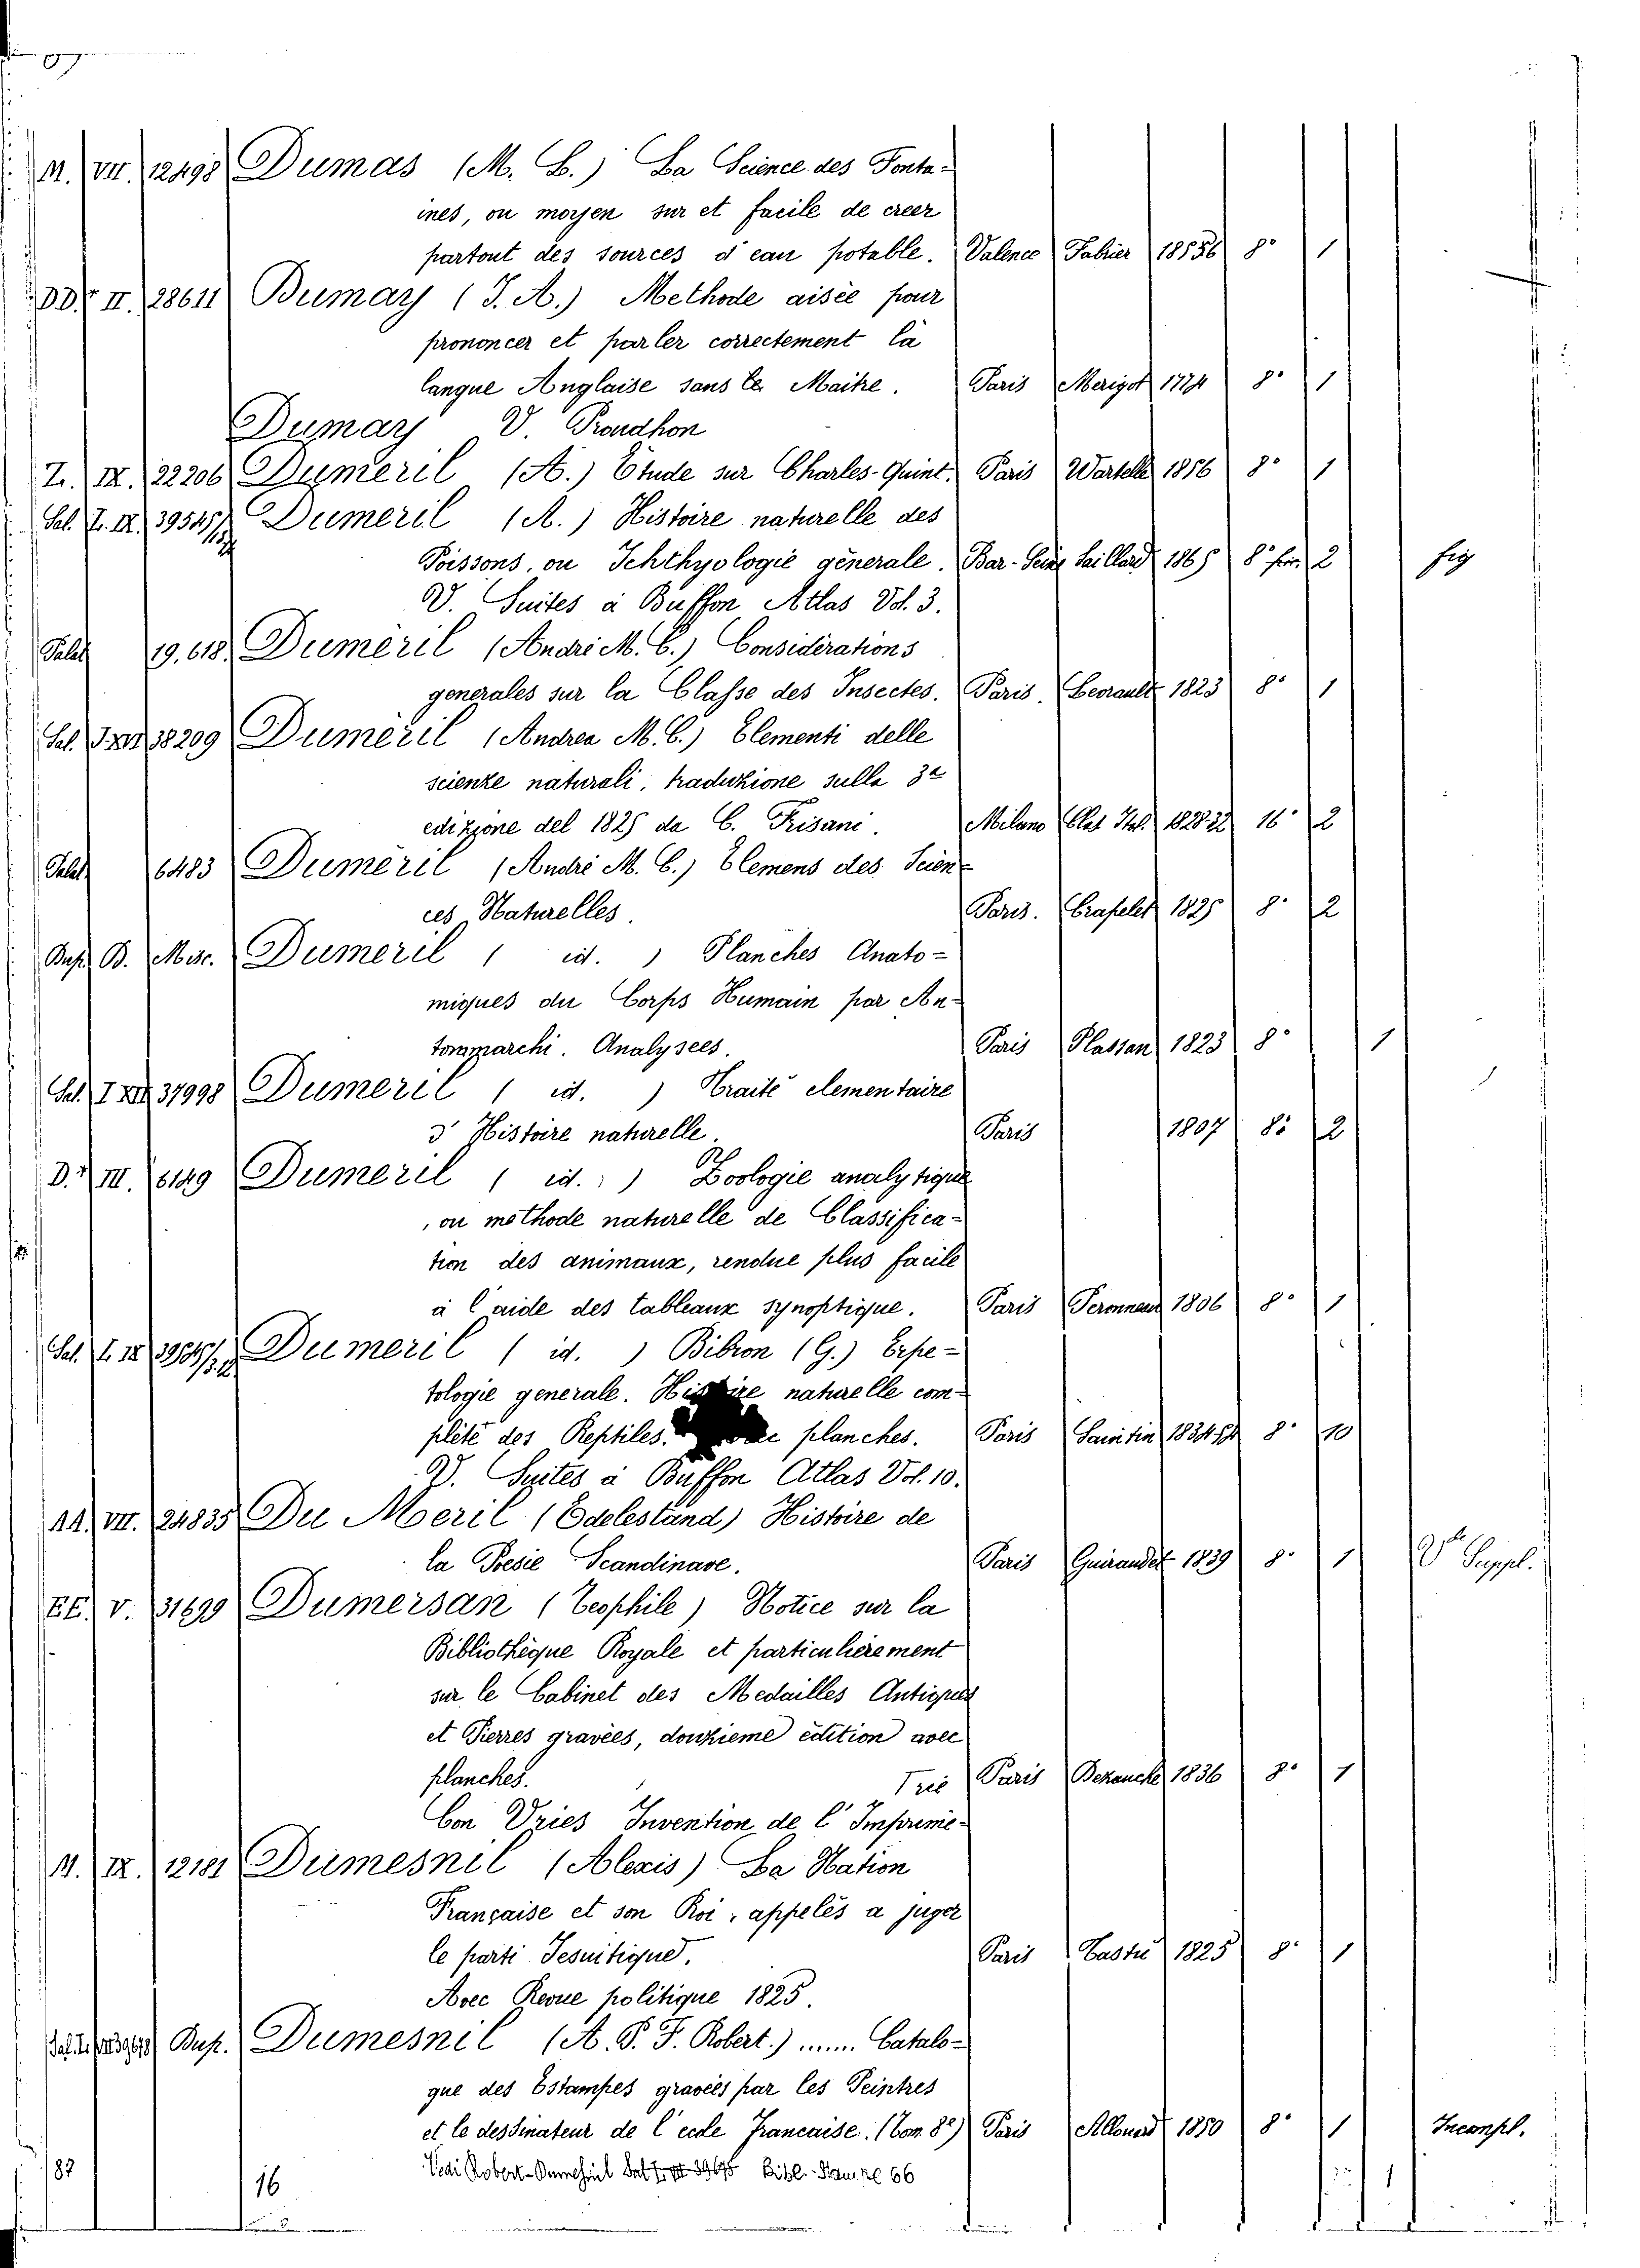 M. VII. 12498 Dumas (M. B.) La Science des Fonta-
ines, ou moyen sur et facile de creer
partout des sources d'eau potable. Valence Fabrier 18556 8° 1
DD. II. 28611 Bumay (J. A.) Methode aisée pour
prononcer et parler correctement la
langue Anglaise sans le Maitre. Paris Merigot 1774 8° 1
Dumay V. Proudhon
Z. IX. 22206 Dumeril (A.) Etude sur Charles-Quint. Paris Wartelle 1856 8° 1
Sal. Z. IX. 39545 Dumeril (A.) Histoire naturelle des
Poissons, ou Ichthyologie génerale. Bar-Seine Saillard 1865 8° 2 fig
V. Suites a Buffon Atlas Vol. 3.
Palat 19.618 Dumeril (André M. C.) Considérations
generales sur la Classe des Insectes. Paris. Levrault 1823 8° 1
Sal. 38209 Dumeril (Andrea M. C.) Elementi delle
scienze naturali, traduzione sulla 3a
edizione del 1825 da C. Frisani. Milano Clas Ital. 1828-32 16° 2
Palat 6483 Dumeril (André M. C.) Elemens des Scien-
ces Naturelles. Paris. Crapelet 1825 8° 2
B. Misc. Dumeril ( id. ) Planches Anato-
miques du Corps Humain par An-
tommarchi. Analysees. Paris Plassan 1823 8° 1
Sal. I XII 37998 Dumeril ( id. ) Traité elementaire
d'Histoire naturelle. Paris 1807 8° 2
D. III. 6149 Dumeril ( id. ) Zoologie analytique
, ou methode naturelle de Classifica-
tion des animaux, rendue plus facile
a l'aide des tableaux synoptique. Paris Peronneau 1806 8° 1
Sal. Z. IX Dumeril ( id. ) Bibron (G.) Erpe-
tologie generale. Histoire naturelle com-
plète des Reptiles. planches. Paris 1834-54 8° 10
V. Suites a Buffon Atlas Vol. 10.
AA. VII. 24835 Du Meril (Edelestand) Histoire de
la Poesie Scandinave. Paris Guirandet 1839 8° 1 Suppl.
EE. V. 31699 Dumersan (Teophile) Notice sur la
Bibliothèque Royale et particulierement
sur le Cabinet des Medailles Antiques
et Pierres gravées, douzieme edition avec
planches. Paris Bezanche 1836 8° 1
Con Vries Invention de l'Imprime-
rie
M. IX. 12181 Dumesnil (Alexis) La Nation
Française et son Roi, appelés a juger
le parti Jesuitique. Paris Castu 1825 8° 1
Avec Revue politique 1825.
Dup. Dumesnil (A. P. F. Robert.) ...... Catalo-
gue des Estampes gravées par les Peintres
et le dessinateur de l'ecole Francaise. (Tom. 8°) Paris Allouard 1850 8° 1 Incompl.
Vedi Robert-Dumesnil Sal. Z. III 39675 Bibl. 66
187 16 1